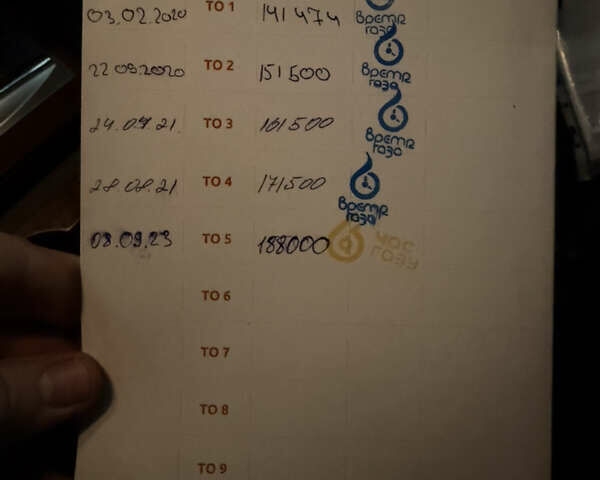 03.02.2020 ТО 1 141474 Время газа
22 09.2020 ТО 2 151500 Время газа
24.04.21. ТО 3 161500 Время газа
28.08.21 ТО 4 171500 Время газа
08.09.23 ТО 5 188000 час газу
ТО 6
ТО 7
ТО 8
ТО 9